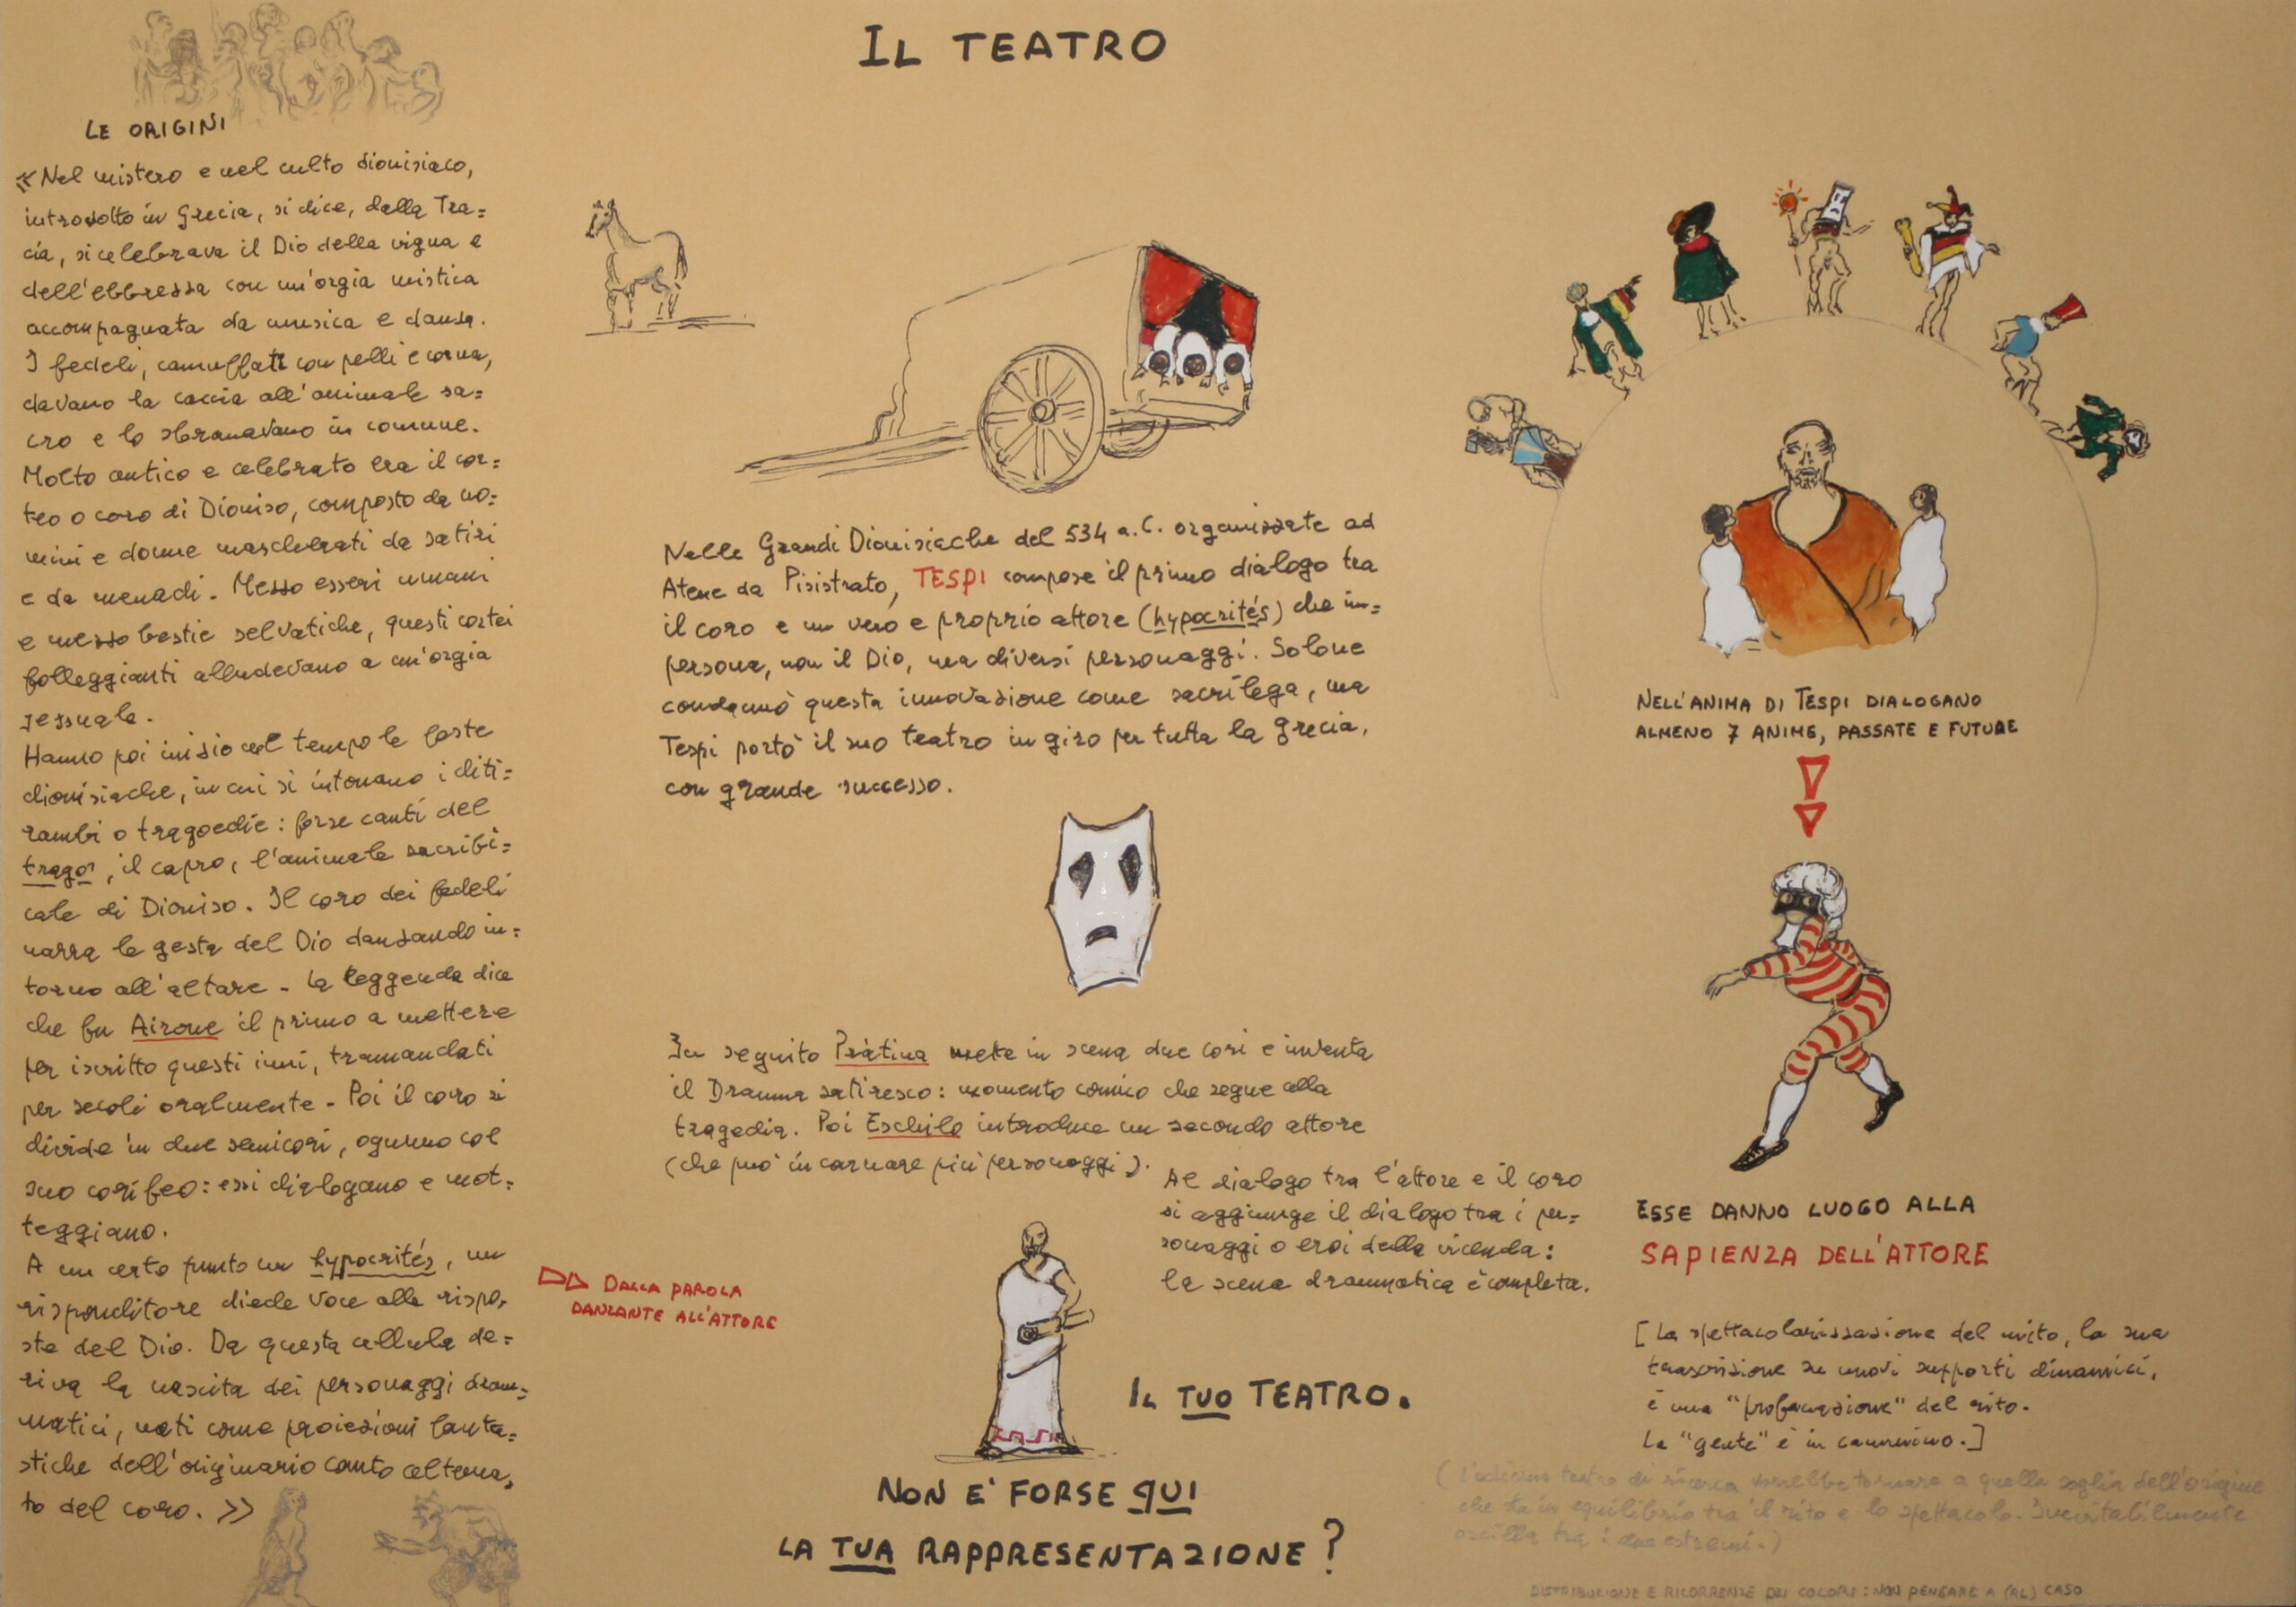 IL TEATRO
LE ORIGINI
«Nel mistero e nel culto dionisiaco,
introdotto in Grecia, si dice, dalla Tra=
cia, si celebrava il Dio della vigna e
dell'ebbrezza con un'orgia mistica
accompagnata da musica e danza.
I fedeli, camuffati con pelli e corna,
davano la caccia all'animale sa=
cro e lo sbranavano in comune.
Molto antico e celebrato era il cor=
teo o coro di Dioniso, composto da uo=
mini e donne mascherati da satiri
e da menadi. Mezzo esseri umani
e mezzo bestie selvatiche, questi cortei
folleggianti alludevano a un'orgia
sessuale.
Hanno poi inizio nel tempo le feste
dionisiache, in cui si intonano i diti=
rambi o tragoedie: forse canti del
tragos, il capro, l'animale sacrifi=
cale di Dioniso. Il coro dei fedeli
narra le gesta del Dio danzando in=
torno all'altare - la leggenda dice
che fu Airone il primo a mettere
per iscritto questi inni, tramandati
per secoli oralmente - Poi il coro si
divide in due semicori, ognuno col
suo corifeo: essi dialogano e mot=
teggiano.
A un certo punto un hypocrités, un
risponditore diede voce alle rispo=
ste del Dio. Da questa cellula de=
riva la nascita dei personaggi dram=
matici, nati come proiezioni fanta=
stiche dell'originario canto alterna=
to del coro. »
DALLA PAROLA
DANZANTE ALL'ATTORE
Nelle Grandi Dionisiache del 534 a.C. organizzate ad
Atene da Pisistrato, TESPI compose il primo dialogo tra
il coro e un vero e proprio attore (hypocrités) che im=
persona, non il Dio, ma diversi personaggi. Solone
condannò questa innovazione come sacrilega, ma
Tespi portò il suo teatro in giro per tutta la Grecia,
con grande successo.
In seguito Pràtina mette in scena due cori e inventa
il Dramma satiresco: momento comico che segue alla
tragedia. Poi Eschilo introduce un secondo attore
(che può incarnare più personaggi).
Al dialogo tra l'attore e il coro
si aggiunge il dialogo tra i per=
sonaggi o eroi della vicenda:
la scena drammatica è completa.
IL TUO TEATRO.
NON E' FORSE QUI
LA TUA RAPPRESENTAZIONE?
NELL'ANIMA DI TESPI DIALOGANO
ALMENO 7 ANIME, PASSATE E FUTURE
ESSE DANNO LUOGO ALLA
SAPIENZA DELL'ATTORE
[La spettacolarizzazione del mito, la sua
trascrizione su nuovi supporti dinamici,
è una "profanazione" del rito.
La "gente" è in cammino.]
teatro di ricerca vorrebbe tornare a quella soglia dell'origine
che sta in equilibrio tra il rito e lo spettacolo. Inevitabilmente
oscilla tra i due estremi.)
DISTRIBUZIONE E RICORRENZE DEI COLORI: NON PENSARE A (AL) CASO